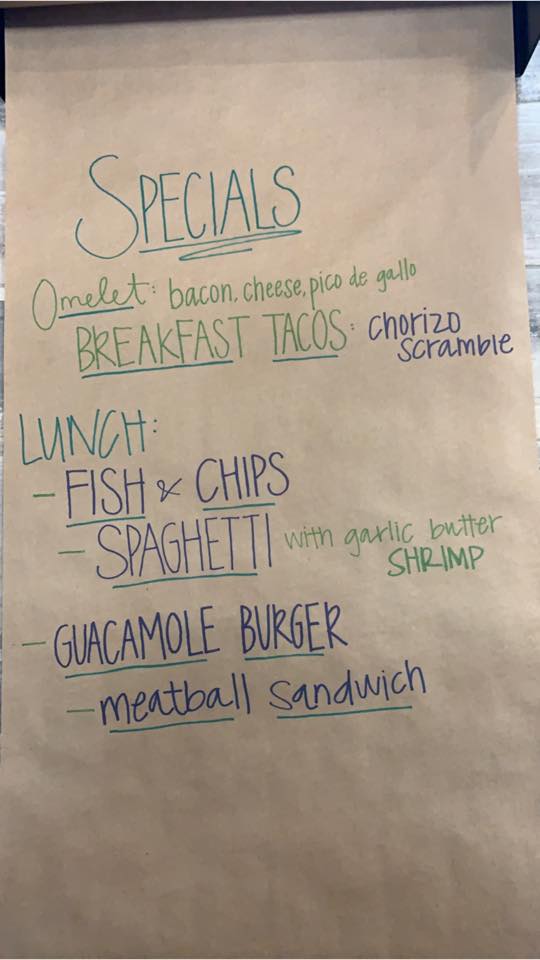 SPECIALS
Omelet: bacon, cheese, pico de gallo
BREAKFAST TACOS: chorizo
scramble
LUNCH:
- FISH & CHIPS
- SPAGHETTI with garlic butter
SHRIMP
- GUACAMOLE BURGER
- meatball sandwich